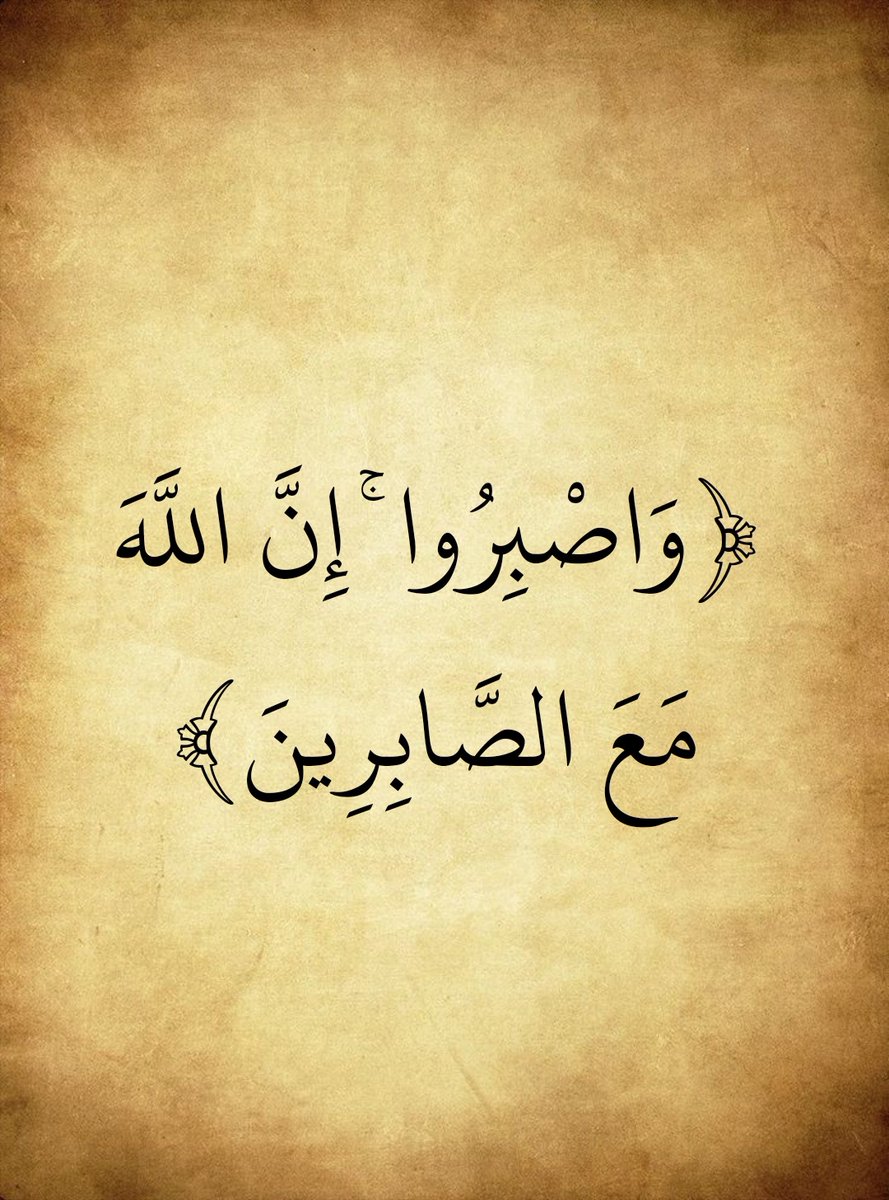 ﴿وَاصْبِرُوا ۚ إِنَّ اللَّهَ
مَعَ الصَّابِرِينَ﴾